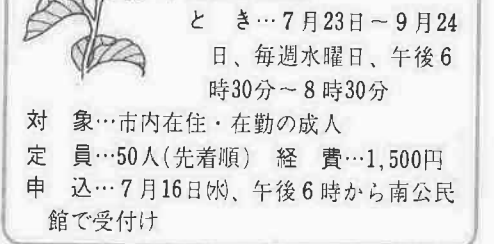 と　き…7月23日～9月24
日、毎週水曜日、午後6
時30分～8時30分
対　象…市内在住・在勤の成人
定　員…50人(先着順)　経　費…1,500円
申　込…7月16日㈬、午後6時から南公民
館で受付け